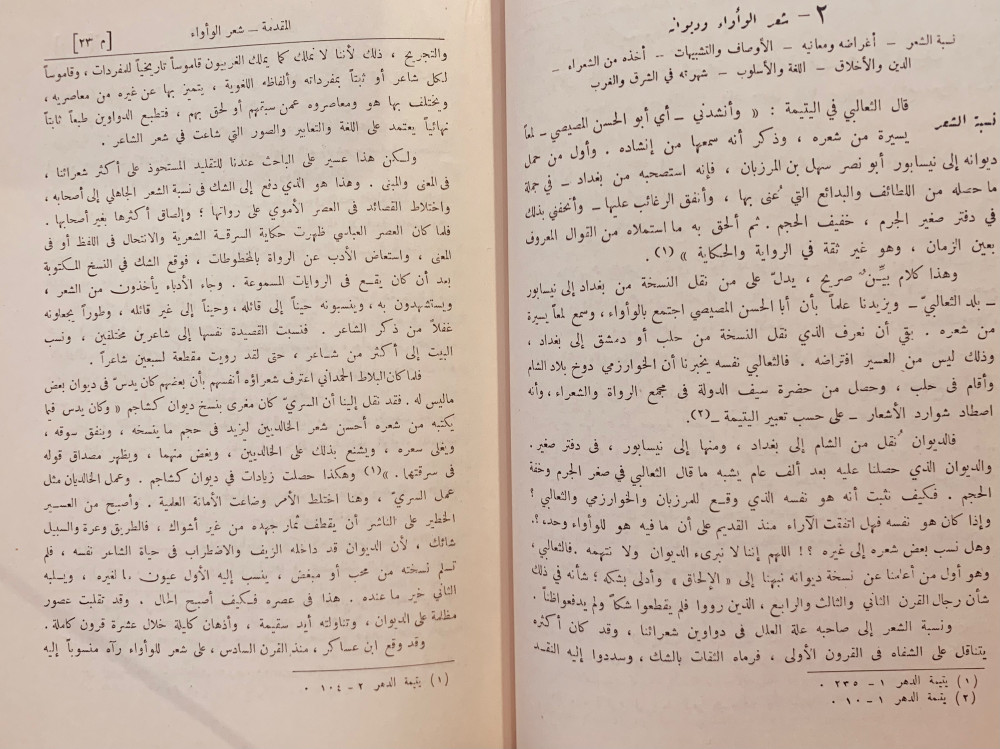 ٢ – شعر الوأواء وديوانه
نسبة الشعر – أغراضه ومعانيه – الأوصاف والتشبيهات – أخذه من الشعراء –
الدين والأخلاق – اللغة والأسلوب – شهرته في الشرق والغرب
نسبة الشعر
قال الثعالبي في اليتيمة : « وأنشدني – أي أبو الحسن المصيصي – لمعاً
يسيرة من شعره ، وذكر أنه سمعها من إنشاده . وأول من حمل
ديوانه إلى نيسابور أبو نصر سهل بن المرزبان ، فإنه استصحبه من بغداد – في جملة
ما حصله من اللطائف والبدائع التي عُنى بها ، وأنفق الرغائب عليها – وأتحفني بذلك
في دفتر صغير الجرم ، خفيف الحجم . ثم ألحق به ما استملاه من القوال المعروف
بعين الزمان ، وهو غير ثقة في الرواية والحكاية » (١).
وهذا كلام بيّنٌ صريح ، يدلّ على من نقل النسخة من بغداد إلى نيسابور
– بلد الثعالبيّ – ويزيدنا علماً بأن أبا الحسن المصيصي اجتمع بالوأواء ، وسمع لمعاً يسيرة
من شعره . بقي أن نعرف الذي نقل النسخة من حلب أو دمشق إلى بغداد ،
وذلك ليس من العسير افتراضه . فالثعالبي نفسه يخبرنا أن الخوارزمي دوخ بلاد الشام
وأقام في حلب ، وحصل من حضرة سيف الدولة في مجمع الرواة والشعراء ، وأنه
اصطاد شوارد الأشعار – على حسب تعبير اليتيمة –(٢).
فالديوان نُقل من الشام إلى بغداد ، ومنها إلى نيسابور ، في دفتر صغير .
والديوان الذي حصلنا عليه بعد ألف عام يشبه ما قال الثعالبي في صغر الجرم وخفة
الحجم . فكيف نثبت أنه هو نفسه الذي وقع للمرزبان والخوارزمي والثعالبي ؟
وإذا كان هو نفسه فهل اتفقت الآراء منذ القديم على أن ما فيه هو للوأواء وحده ؟.
وهل نسب بعض شعره إلى غيره ؟! اللهم إننا لا نبرىء الديوان ولا نتهمه . فالثعالبي ،
وهو أول من أعلمنا عن نسخة ديوانه نبهنا إلى « الإلحاق » وأدلى بشكه ؛ شأنه في ذلك
شأن رجال القرن الثاني والثالث والرابع ، الذين رووا فلم يقطعوا شكاً ولم يدفعوا ظناً .
ونسبة الشعر إلى صاحبه علة العلل في دواوين شعرائنا ، وقد كان أكثره
يتناقل على الشفاه في القرون الأولى ، فرماه الثقات بالشك ، وسددوا إليه النقد
(١) يتيمة الدهر ١ – ٢٣٥ .
(٢) يتيمة الدهر ١ – ١٠ .
المقدمة – شعر الوأواء
[م ٢٣]
والتجريح ، ذلك لأننا لا نملك كما يملك الغربيون قاموساً تاريخياً للمفردات ، وقاموساً
لكل شاعر أو ثبتاً بمفرداته وألفاظه اللغوية ، يتميز بها عن غيره من معاصريه ،
ويختلف بها هو ومعاصروه عمن سبقهم أو لحق بهم ، فتطبع الدواوين طبعاً ثابتاً
نهائياً يعتمد على اللغة والتعابير والصور التي شاعت في شعر الشاعر .
ولكن هذا عسير على الباحث عندنا للتقليد المستحوذ على أكثر شعرائنا ،
في المعنى والمبنى . وهذا هو الذي دفع إلى الشك في نسبة الشعر الجاهلي إلى أصحابه ،
واختلاط القصائد في العصر الأموي على رواتها ؛ وإلصاق أكثرها بغير أصحابها .
فلما كان العصر العباسي ظهرت حكاية السرقة الشعرية والانتحال في اللفظ أو في
المعنى ، واستعاض الأدب عن الرواة بالمخطوطات ، فوقع الشك في النسخ المكتوبة
بعد أن كان يقع في الروايات المسموعة . وجاء الأدباء يأخذون من الشعر ،
ويستشهدون به ، وينسبونه حيناً إلى قائله ، وحيناً إلى غير قائله ، وطوراً يجعلونه
غفلاً من ذكر الشاعر . فنسبت القصيدة نفسها إلى شاعرين مختلفين ، ونسب
البيت إلى أكثر من شاعر ، حتى لقد رويت مقطعة لسبعين شاعراً .
فلما كان البلاط الحمداني اعترف شعراؤه أنفسهم بأن بعضهم كان يدسّ في ديوان بعض
ماليس له . فقد نقل إلينا أن السريّ كان مغرى بنسخ ديوان كشاجم « وكان يدس فيما
يكتبه من شعره أحسن شعر الخالديين ليزيد في حجم ما ينسخه ، وينفق سوقه ،
ويغلى سعره ، ويشنع بذلك على الخالديين ، ويغض منهما ، ويظهر مصداق قوله
في سرقتها . »(١) وهكذا حصلت زيادات في ديوان كشاجم . وعمل الخالديان مثل
عمل السريّ ، وهنا اختلط الأمر وضاعت الأمانة العلمية . وأصبح من العسير
الخطير على الناشر أن يقطف ثمار جهده من غير أشواك ، فالطريق وعرة والسبيل
شائك ، لأن الديوان قد داخله الزيف والاضطراب في حياة الشاعر نفسه ، فلم
تسلم نسخته من محب أو مبغض ، ينسب إليه الأول عيون ما لغيره ، ويسلبه
الثاني خير ما عنده . هذا في عصره فكيف أصبح الحال . وقد تقلبت عصور
مظلمة على الديوان ، وتناولته أيد سقيمة ، وأذهان كليلة خلال عشرة قرون كاملة .
وقد وقع ابن عساكر ، منذ القرن السادس ، على شعر للوأواء رآه منسوباً إليه
(١) يتيمة الدهر ٢ – ١٠٤ .